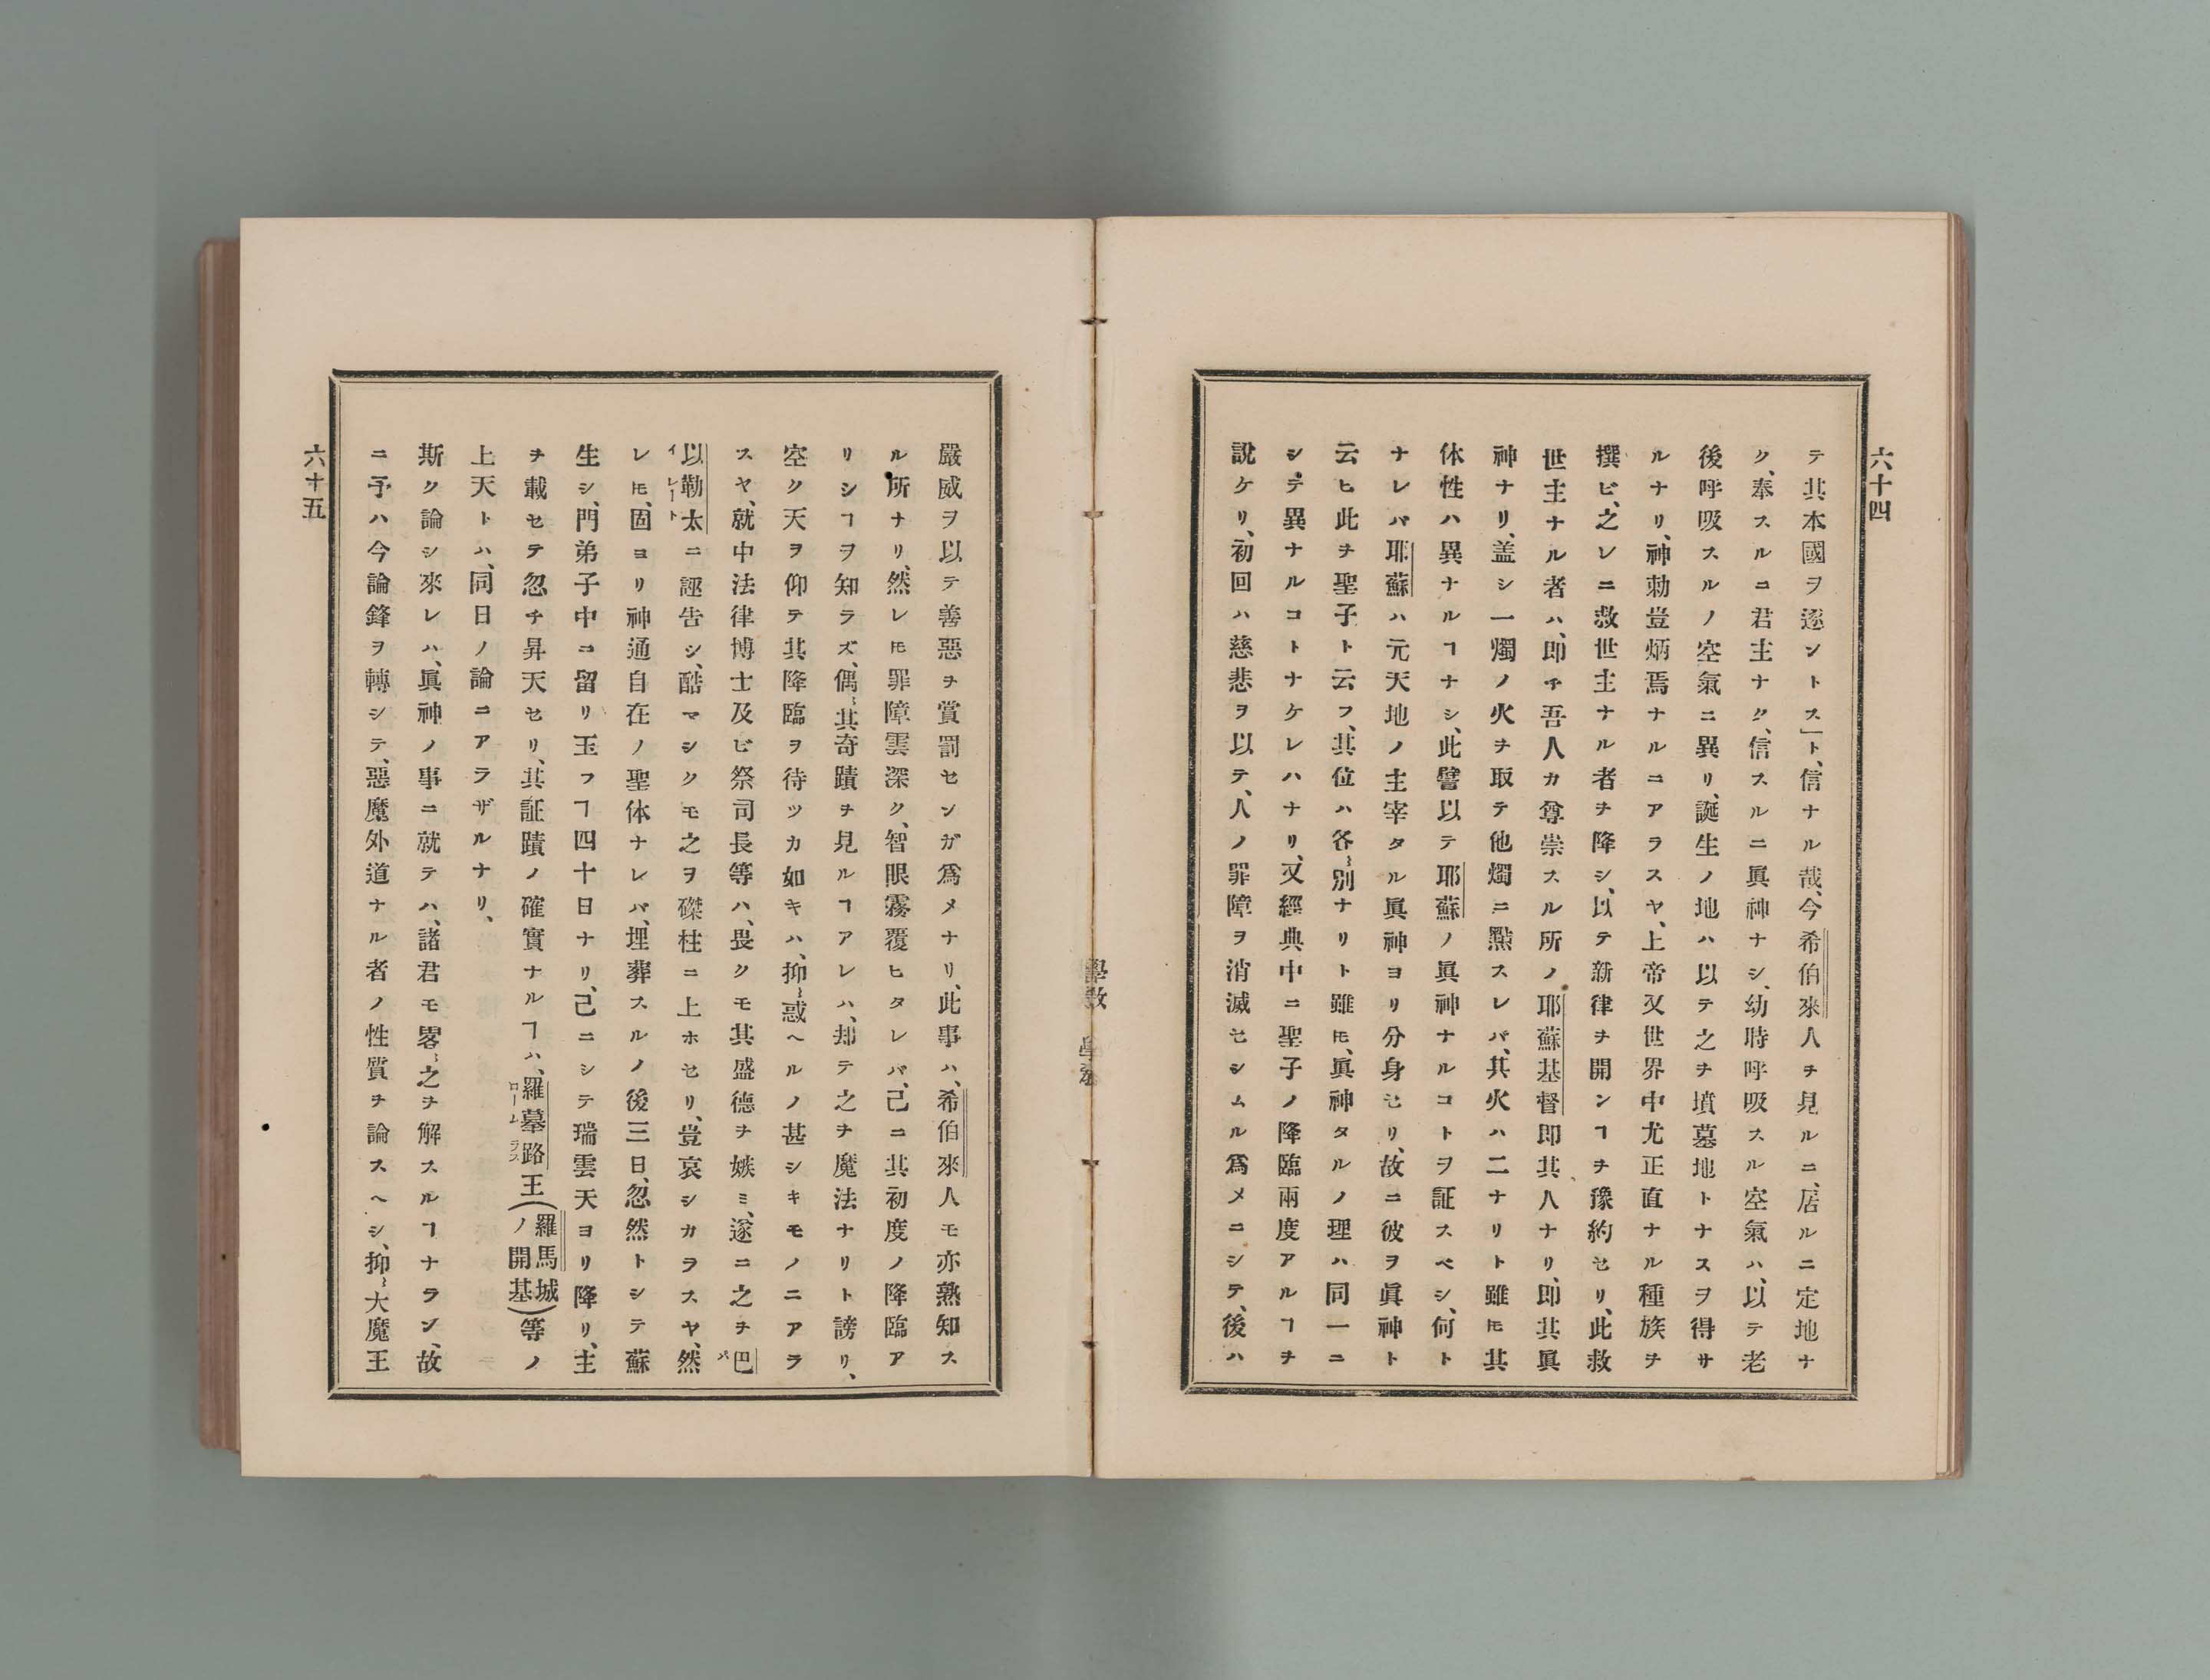 六十四
テ其本國ヲ逐ントス」ト、信ナル哉、今希伯來人ヲ見ルニ、居ルニ定地ナ
ク、奉スルニ君主ナク、信スルニ眞神ナシ、幼時呼吸スル空氣ハ、以テ老
後呼吸スルノ空氣ニ異リ、誕生ノ地ハ以テ之ヲ墳墓地トナスヲ得サ
ルナリ、神勅豈炳焉ナルニアラスヤ、上帝又世界中尤正直ナル種族ヲ
撰ビ、之レニ救世主ナル者ヲ降シ、以テ新律ヲ開ンヿヲ豫約セリ、此救
世主ナル者ハ、即チ吾人カ尊崇スル所ノ耶蘇基督即其人ナリ、即其眞
神ナリ、盖シ一燭ノ火ヲ取テ他燭ニ㸃スレバ、其火ハ二ナリト雖ㇳモ其
休性ハ異ナルヿナシ、此譬以テ耶蘇ノ眞神ナルコトヲ証スベシ、何ト
ナレバ耶蘇ハ元天地ノ主宰タル眞神ヨリ分身セリ、故ニ彼ヲ眞神ト
云ヒ此ヲ聖子ト云フ、其位ハ各〻別ナリト雖ㇳモ、眞神タルノ理ハ同一ニ
シテ異ナルコトナケレハナリ、又經典中ニ聖子ノ降臨兩度アルヿヲ
說ケリ、初回ハ慈悲ヲ以テ、人ノ罪障ヲ消滅セシムル爲メニシテ、後ハ
嚴威ヲ以テ善惡ヲ賞罰センガ爲メナリ、此事ハ、希伯來人モ亦熟知ス
ル所ナリ、然レㇳモ罪障雲深ク、智眼霧覆ヒタレバ、己ニ其初度ノ降臨ア
リシヿヲ知ラズ、偶〻其奇蹟ヲ見ルヿアレハ、却テ之ヲ魔法ナリト謗リ、
空ク天ヲ仰テ其降臨ヲ待ツカ如キハ、抑〻惑ヘルノ甚シキモノニアラ
スヤ、就中法律博士及ビ祭司長等ハ、畏クモ其盛德ヲ嫉ミ、遂ニ之ヲ巴パ
以イ勒レー太トニ誣告シ、酷マシクモ之ヲ磔柱ニ上ホセリ、豈哀シカラスヤ、然
レㇳモ、固ヨリ神通自在ノ聖体ナレバ、埋葬スルノ後三日、忽然トシテ蘇
生シ、門弟子中ニ留リ玉フヿ四十日ナリ、己ニシテ瑞雲天ヨリ降リ、主
ヲ載セテ忽チ昇天セリ、其証蹟ノ確實ナルヿハ、羅ロー墓ム路ラス王(羅馬城ノ開基)等ノ
上天トハ、同日ノ論ニアラザルナリ、
斯ク論シ來レハ、眞神ノ事ニ就テハ、諸君モ畧〻之ヲ解スルヿナラン、故
ニ予ハ今論鋒ヲ轉シテ、惡魔外道ナル者ノ性質ヲ論スヘシ、抑〻大魔王
六十五